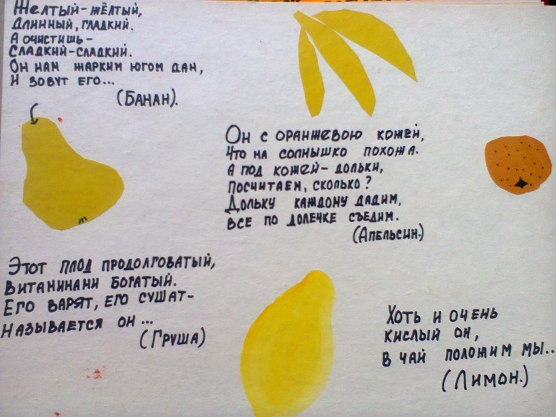 Желтый-жёлтый,
Длинный, гладкий.
А очистишь-
Сладкий-сладкий.
Он нам жарким югом дан,
И зовут его...
(Банан).
Он с оранжевою кожей,
Что на солнышко похожа.
А под кожей- дольки,
Посчитаем, сколько?
Дольку каждому дадим,
Все по долечке съедим.
(Апельсин.)
Этот плод продолговатый,
Витаминами богатый.
Его варят, его сушат-
Называется он ...
(Груша)
Хоть и очень
кислый он,
В чай положим мы...
(Лимон.)